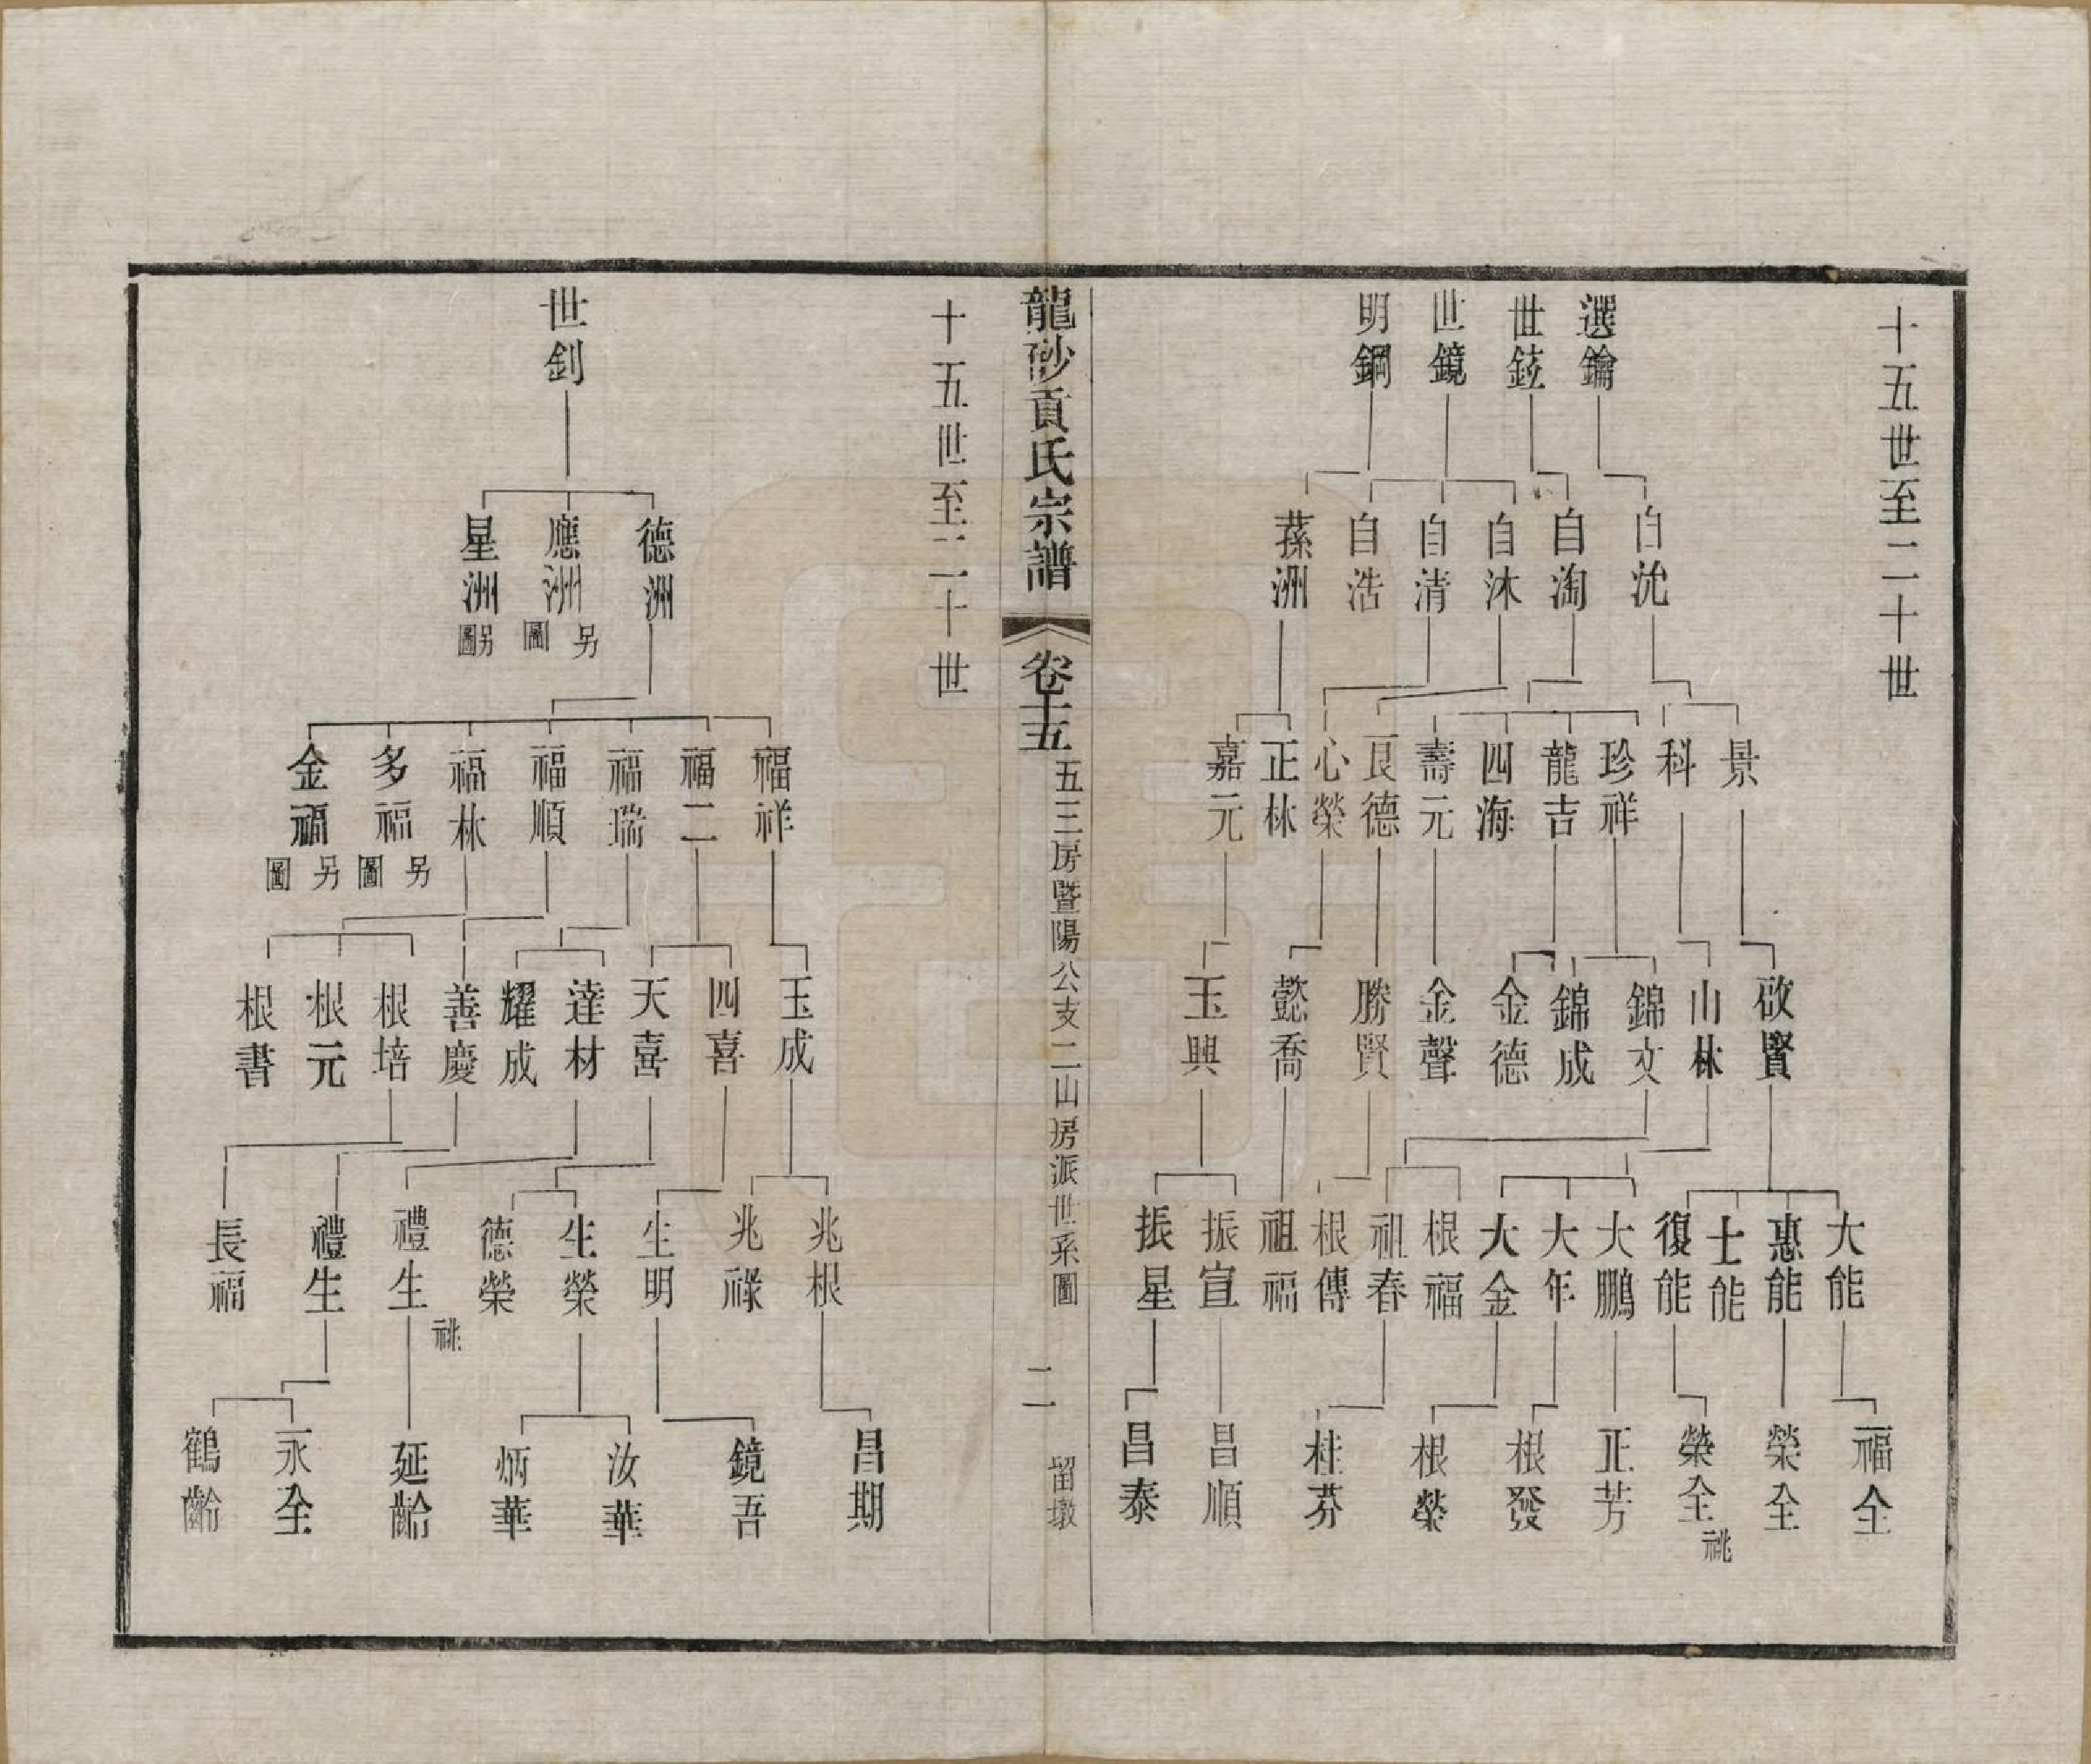 十五世至二十世
選鑰 世鉉 世鏡 明鋼
自沇 自淘 自沐 自清 自浩 蓀洲
景 科 珍祥 龍吉 四海 壽元 良德 心榮 正林 嘉元
啟賢 山林 錦文 錦成 金德 金聲 勝賢 懿喬 玉興
大能 惠能 士能 復能 大鵬 大年 大金 根福 祖春 根傳 祖福 振宣 振星
福全 榮全 榮全祧 正芳 根發 根榮 桂芬 昌順 昌泰
龍砂貢氏宗譜 卷十五 五三房暨陽公支二山房派世系圖 二 留墩
十五世至二十世
世釗
德洲 應洲另圖 星洲另圖
福祥 福二 福瑞 福順 福林 多福另圖 金福另圖
玉成 四喜 天喜 達材 耀成 善慶 根培 根元 根書
兆根 兆祿 生明 生榮 德榮 禮生祧 禮生 長福
昌期 鏡吾 汝華 炳華 延齡 永全 鶴齡